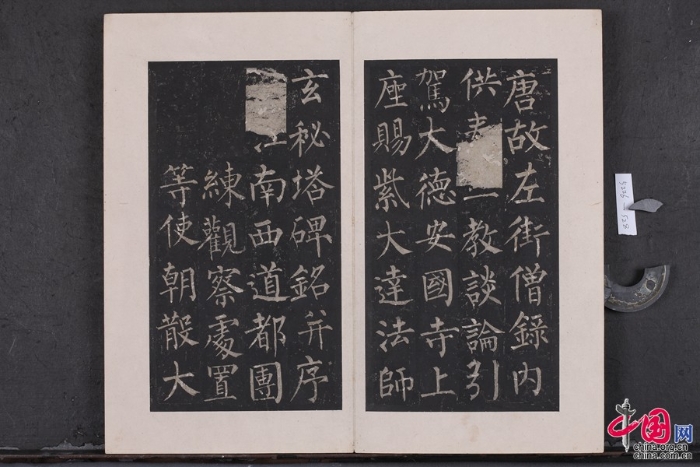 唐故左街僧錄內
供奉一教談論引
駕大德安國寺上
座賜紫大達法師
玄秘塔碑銘并序
江南西道都團
練觀察處置
等使朝散大
中国网
china.org.cn
china.com.cn